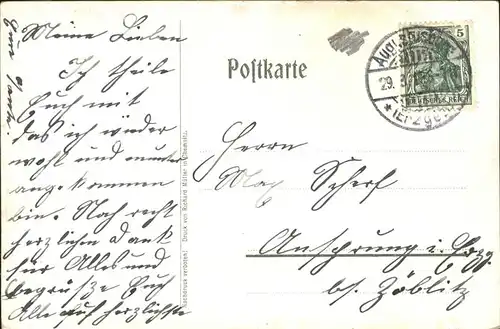 Meine Lieben
Ich theile
Euch mit
das ich wieder
wohl und munter
angekommen
bin. Noch recht
herzlichen Dank
für Alles und
begrüße Euch
Alle auf herzlichste
Eure Tante
Nachdruck verboten! Druck von Richard Müller in Chemnitz.
Postkarte
5
DEUTSCHES REICH
Augustusb
29. 8.
* (Erzgeb
Herrn
Max Scherf
Ansprung i. Erzg.
bs. Zöblitz